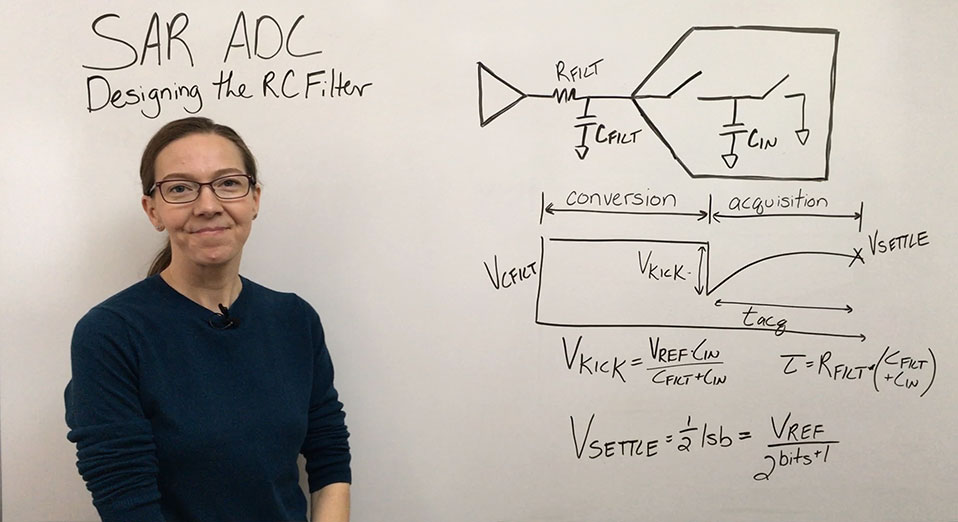 SAR ADC
Designing the RC Filter
RFILT
CFILT
CIN
conversion
acquisition
VCFILT
VKICK
VSETTLE
tacq
VKICK = VREF·CIN / CFILT+CIN
τ = RFILT·(CFILT + CIN)
VSETTLE = 1/2 lsb = VREF / 2^bits+1